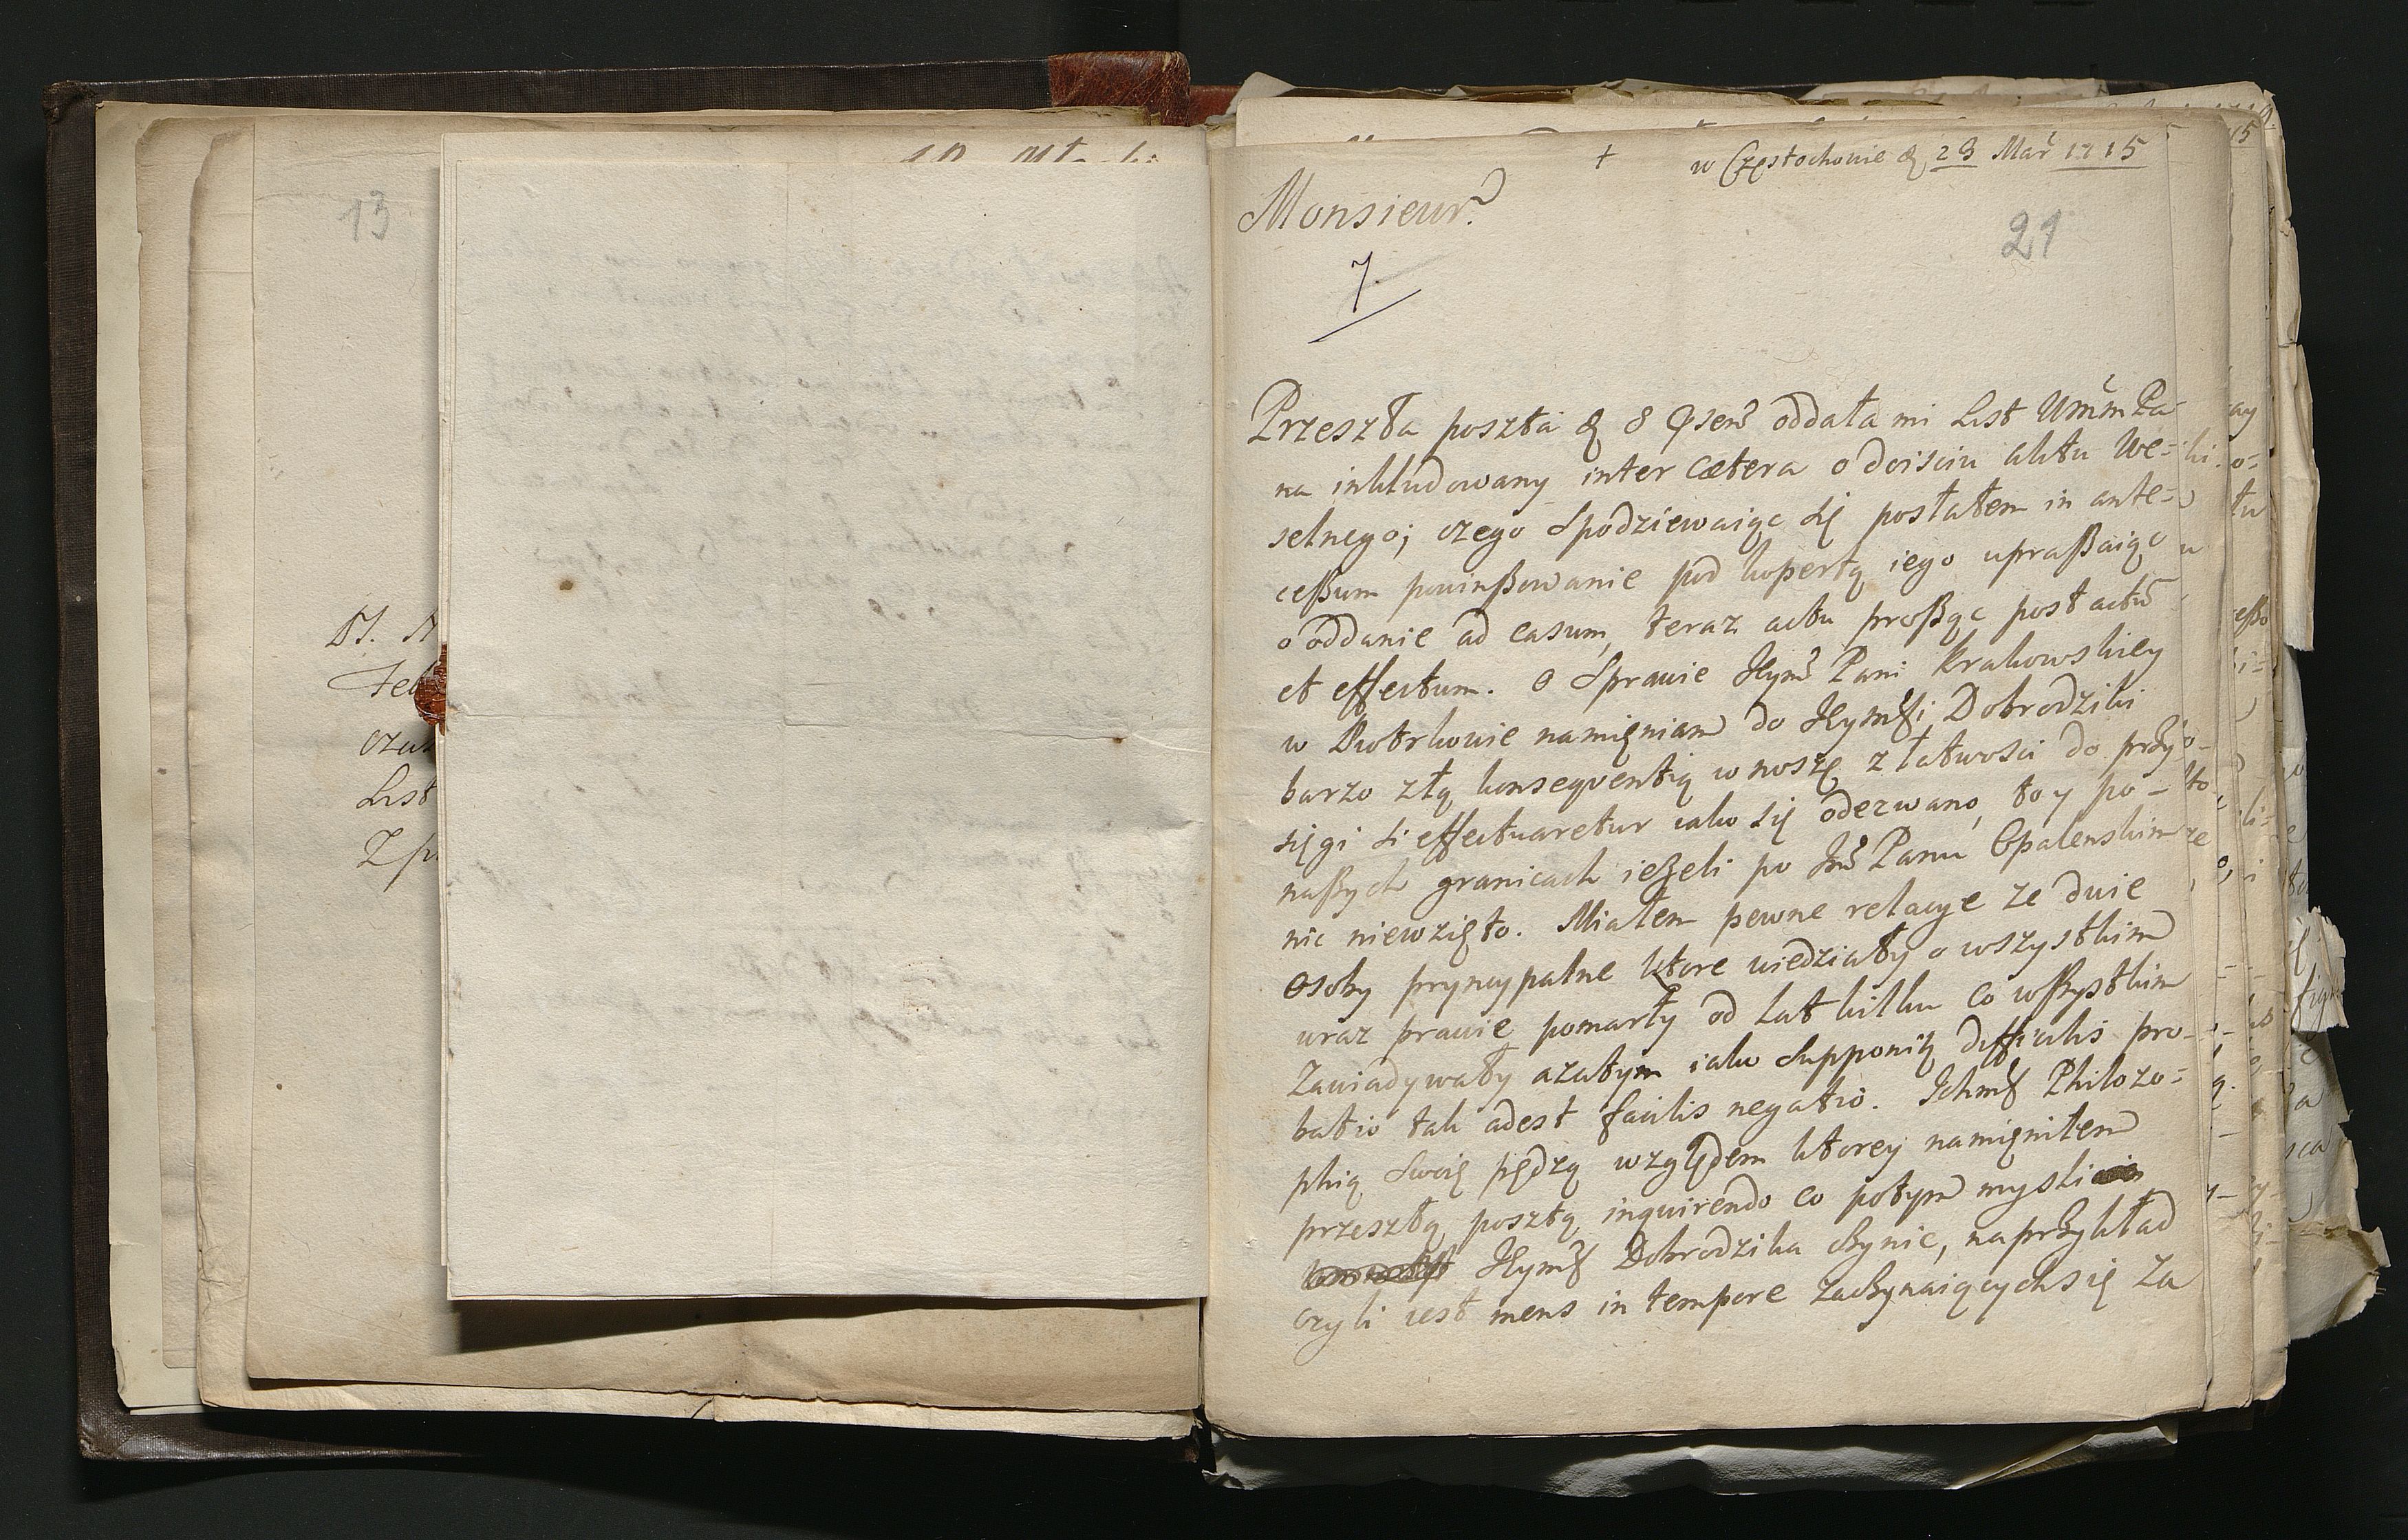 13
DJ.
Feb
czas
List
Z p
+ w Częstochowie d 23 Mar 1715
Monsieur
21
7.
Przeszła poszta d 8 oddała mi List Pa
na inkludowany inter cætera o doisciu aktu We=
selnego; czego Spodziewaiąc się posłałem in ante=
ceßum powinßowanie pod kopertą iego upraßaiąc
o oddanie ad casum, teraz actu proßąc post actũ
et effectum. O Sprawie Jeym̃ Pani Krakowskiey
w Piotrkowie namięniam do Dobrodziki
barzo złą konseqventią wnoszę z łatwości do przy
sięgi si effectuaretur iako się odezwano, to y po-
naßych granicach ieżeli po Jm̃ Panu Opalenskim
nic niewzięto. Miałem pewne relacye ze dwie
Osoby pryncypalne ktore wiedziały o wszystkim
wraz prawie pomarły od Lat kilku co wßystkim
Zawiadywały azatym iako Supponię difficilis pro-
batio tak adest facilis negatio. Philozo=
phią Swoię pędzą względem ktorey namięniłem
przeszłą posztą inquirendo co potym mysli
Dobrodzika czynic, naprzykład
czyli iest mens in tempore zaczynaiących się Za